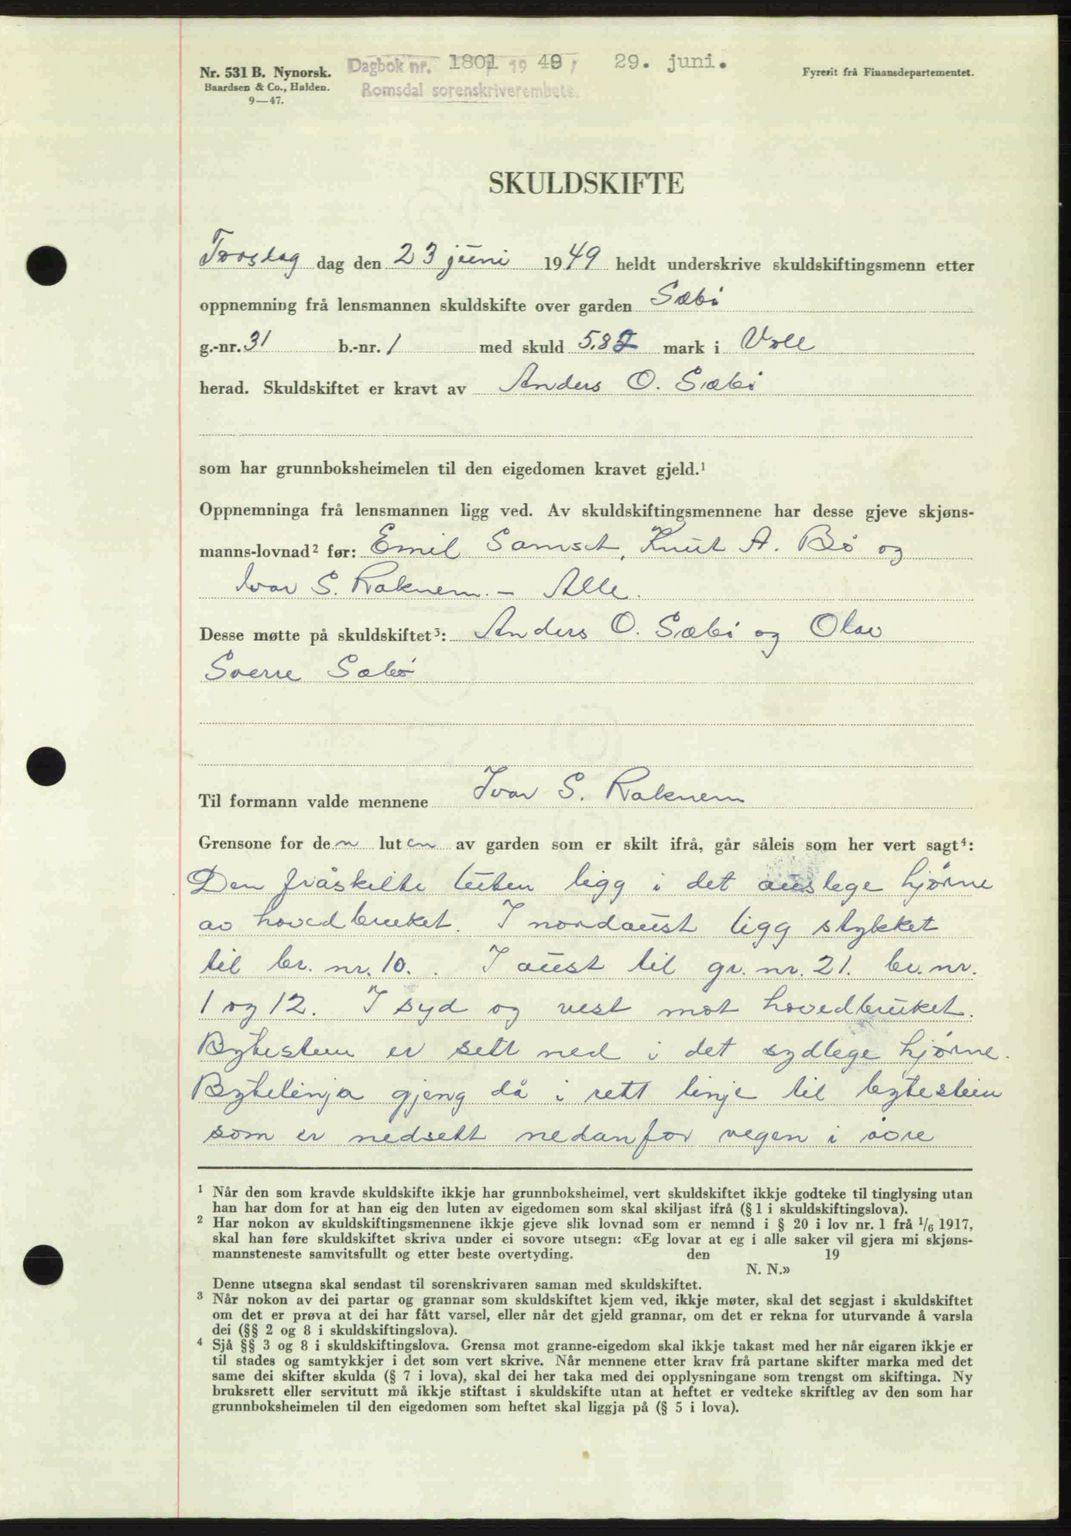 Nr. 531 B. Nynorsk.
Baardsen & Co., Halden.
9—47.
Dagbok nr. 1801 1949, 29. juni.
Romsdal sorenskriverembete.
Fyrerit frå Finansdepartementet.
SKULDSKIFTE
Torsdag dag den 23 juni 1949 heldt underskrive skuldskiftingsmenn etter
oppnemning frå lensmannen skuldskifte over garden Sæbø
g.-nr. 31 b.-nr. 1 med skuld 5.82 mark i Voll
herad. Skuldskiftet er kravt av Anders O. Sæbø
som har grunnboksheimelen til den eigedomen kravet gjeld.¹
Oppnemninga frå lensmannen ligg ved. Av skuldskiftingsmennene har desse gjeve skjøns-
manns-lovnad² før: Emil Samset, Knut A. Bø og
Ivar S. Raknem. – Alle.
Desse møtte på skuldskiftet³: Anders O. Sæbø og Olav
Sverre Sæbø
Til formann valde mennene Ivar S. Raknem
Grensone for den luten av garden som er skilt ifrå, går såleis som her vert sagt⁴:
Den fråskilte luten ligg i det austlege hjørne
av hovedbruket. I nordaust ligg stykket
til br. nr. 10. I aust til gr. nr. 21. br. nr.
1 og 12. I syd og vest mot hovedbruket.
Bytestein er sett ned i det sydlege hjørne.
Bytelinja gjeng då i rett linje til bytestein
som er nedsett nedanfor vegen i øvre
¹ Når den som kravde skuldskifte ikkje har grunnboksheimel, vert skuldskiftet ikkje godteke til tinglysing utan
han har dom for at han eig den luten av eigedomen som skal skiljast ifrå (§ 1 i skuldskiftingslova).
² Har nokon av skuldskiftingsmennene ikkje gjeve slik lovnad som er nemnd i § 20 i lov nr. 1 frå 1/6 1917,
skal han føre skuldskiftet skriva under ei sovore utsegn: «Eg lovar at eg i alle saker vil gjera mi skjøns-
mannsteneste samvitsfullt og etter beste overtyding. den 19
N. N.»
Denne utsegna skal sendast til sorenskrivaren saman med skuldskiftet.
³ Når nokon av dei partar og grannar som skuldskiftet kjem ved, ikkje møter, skal det segjast i skuldskiftet
om det er prøva at dei har fått varsel, eller når det gjeld grannar, om det er rekna for uturvande å varsla
dei (§§ 2 og 8 i skuldskiftingslova).
⁴ Sjå §§ 3 og 8 i skuldskiftingslova. Grensa mot granne-eigedom skal ikkje takast med her når eigaren ikkje er
til stades og samtykkjer i det som vert skrive. Når mennene etter krav frå partane skifter marka med det
same dei skifter skulda (§ 7 i lova), skal dei her taka med dei opplysningane som trengst om skiftinga. Ny
bruksrett eller servitutt må ikkje stiftast i skuldskifte utan at heftet er vedteke skriftleg av den som har
grunnboksheimelen til den eigedomen som heftet skal liggja på (§ 5 i lova).